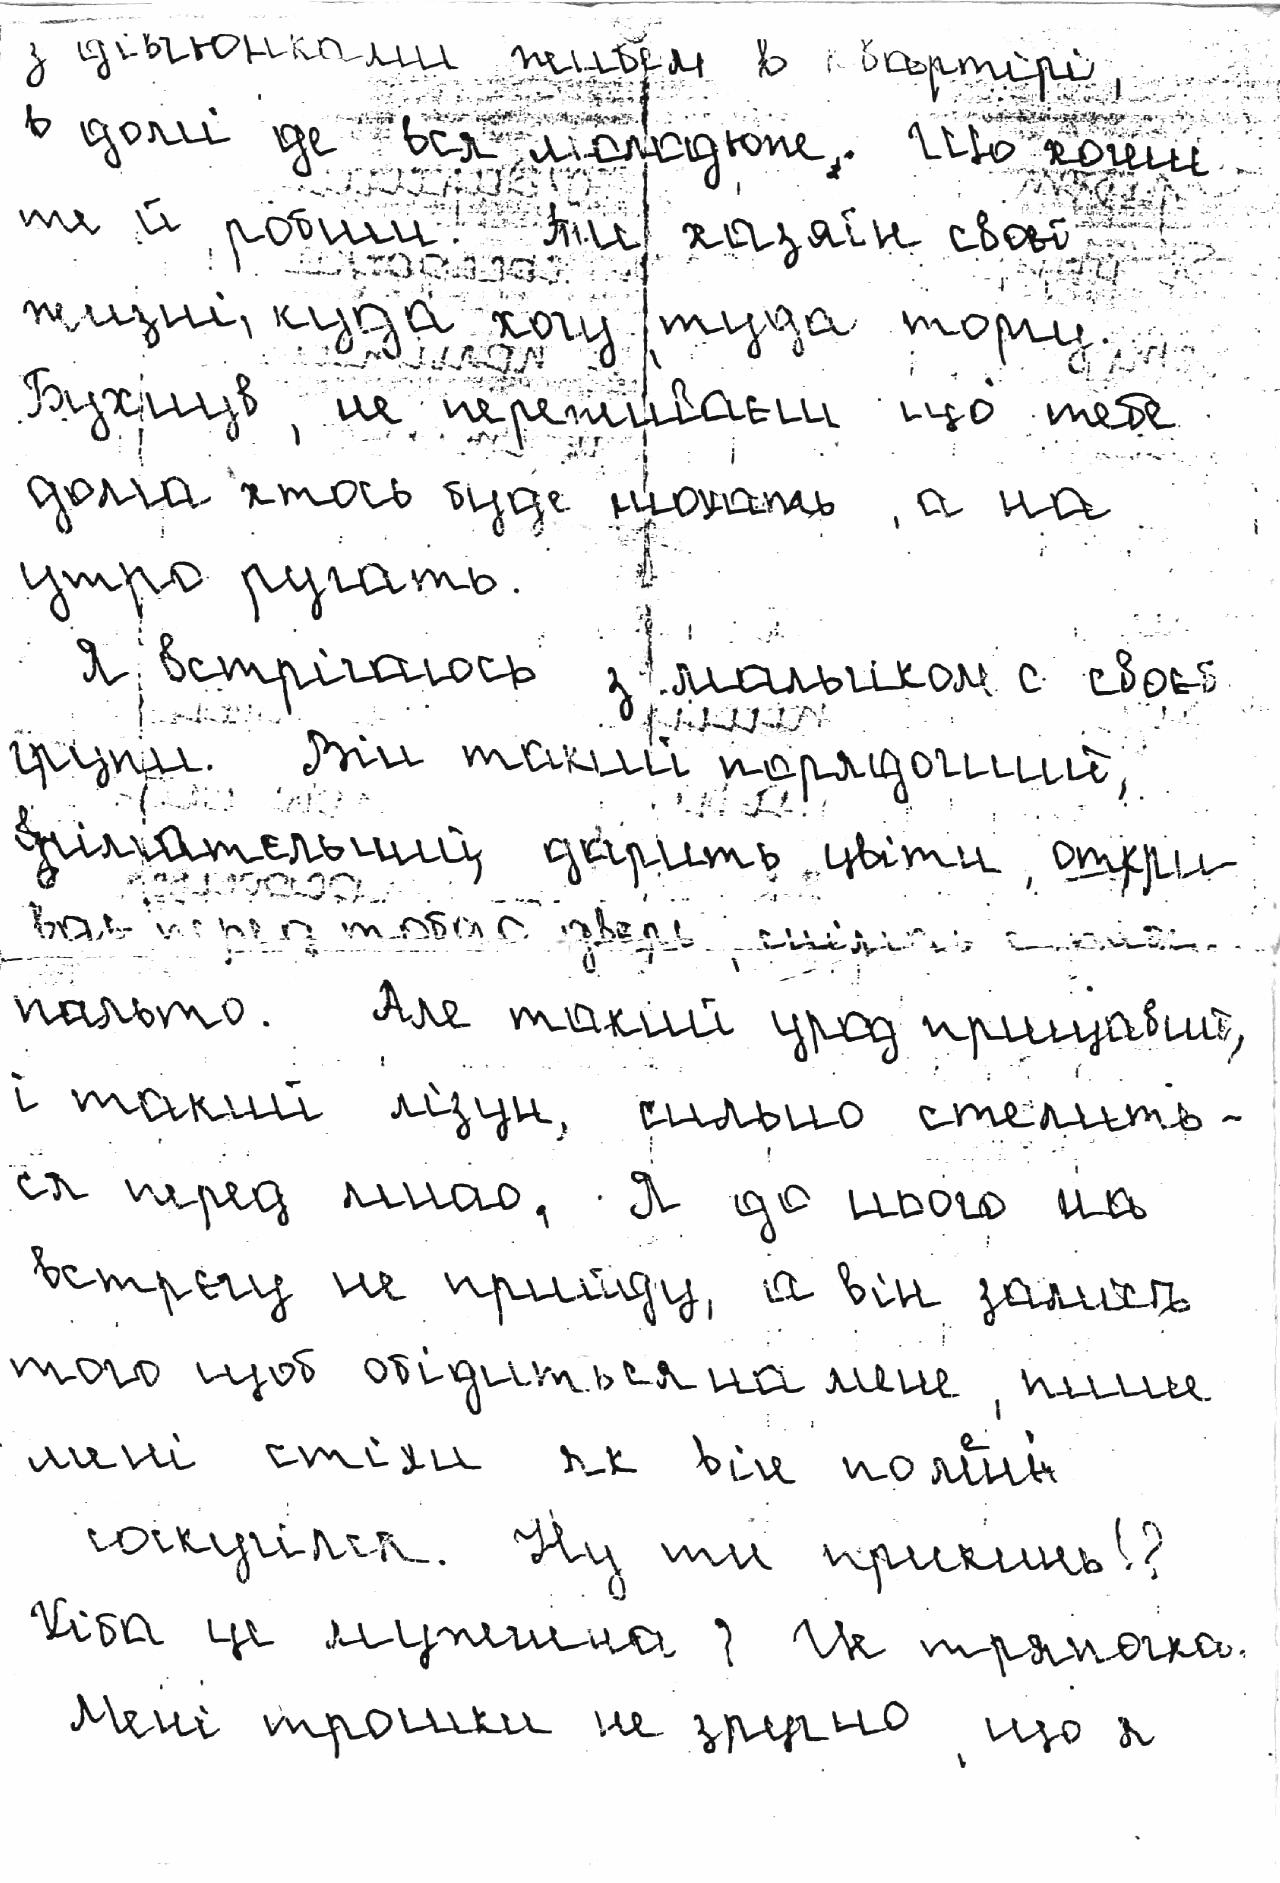 з дівчонками живем в квартірі,
в домі де вся молодюже. Що хочиш
те й робиш. Ти хазяїн своєї
жизні, куда хочу туда торчу.
Бухнув, не переживаєш що тебе
дома хтось буде нюхать, а на
утро ругать.
Я встрічаюсь з мальчиком с своєї
групи. Він такий порядочний,
внімательний, дарить цвіти, откри-
ває перед тобою двері, снімає
пальто. Але такий урод прищавий,
і такий лізун, сильно стелить-
ся перед мною. Я до нього на
встрєчу не прийду, а він замість
того щоб обідиться на мене, пише
мені стіхи як він по мені
соскучілся. Ну ти прикинь!?
Хіба це мужчина? Це тряпочка.
Мені трошки не зручно, що я